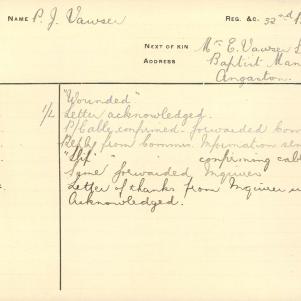 NAME P. J. Vawser REG. &C. 32nd
NEXT OF KIN Mr E. Vawser
ADDRESS Baptist Man
Angaston.
"Wounded"
1/2 Letter acknowledged.
P/Cally confirmed. forwarded Com
Reply from Commrs. Information sen
"Slip" " confirming cabl
Same forwarded Inquirer
Letter of thanks from Inquirer
Acknowledged.